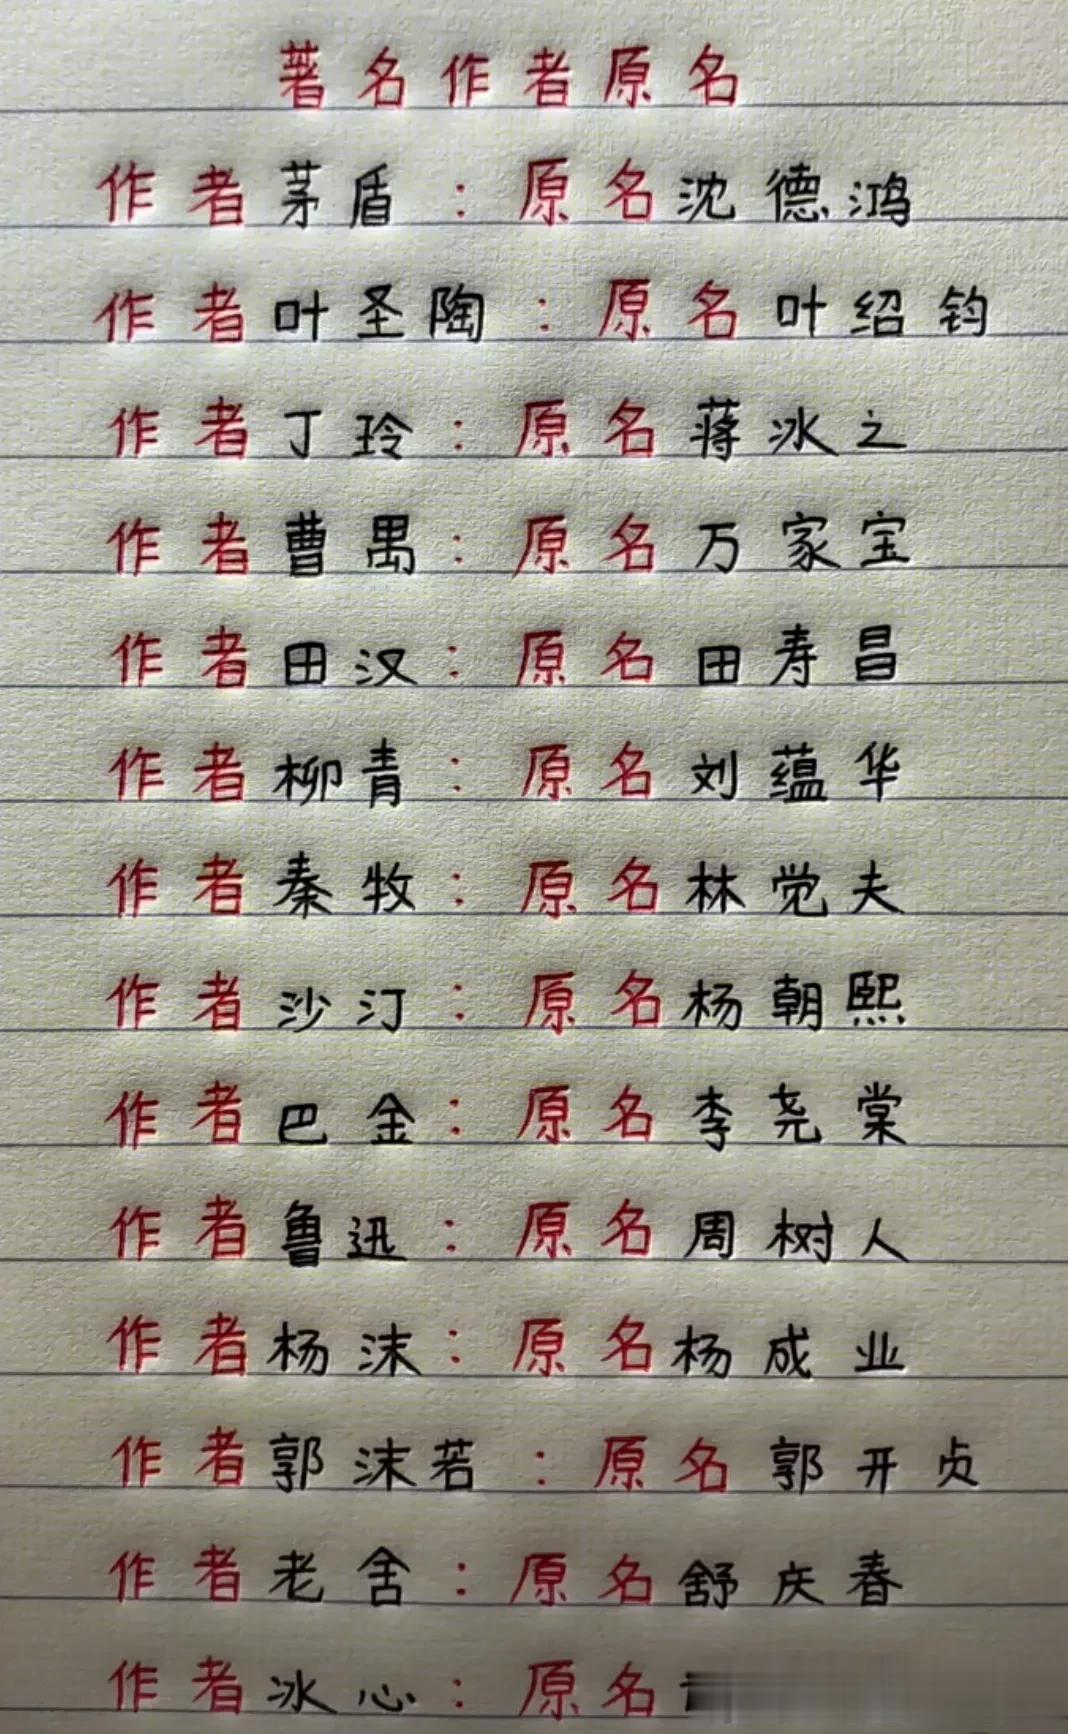 著名作者原名
作者茅盾：原名沈德鸿
作者叶圣陶：原名叶绍钧
作者丁玲：原名蒋冰之
作者曹禺：原名万家宝
作者田汉：原名田寿昌
作者柳青：原名刘蕴华
作者秦牧：原名林觉夫
作者沙汀：原名杨朝熙
作者巴金：原名李尧棠
作者鲁迅：原名周树人
作者杨沫：原名杨成业
作者郭沫若：原名郭开贞
作者老舍：原名舒庆春
作者冰心：原名